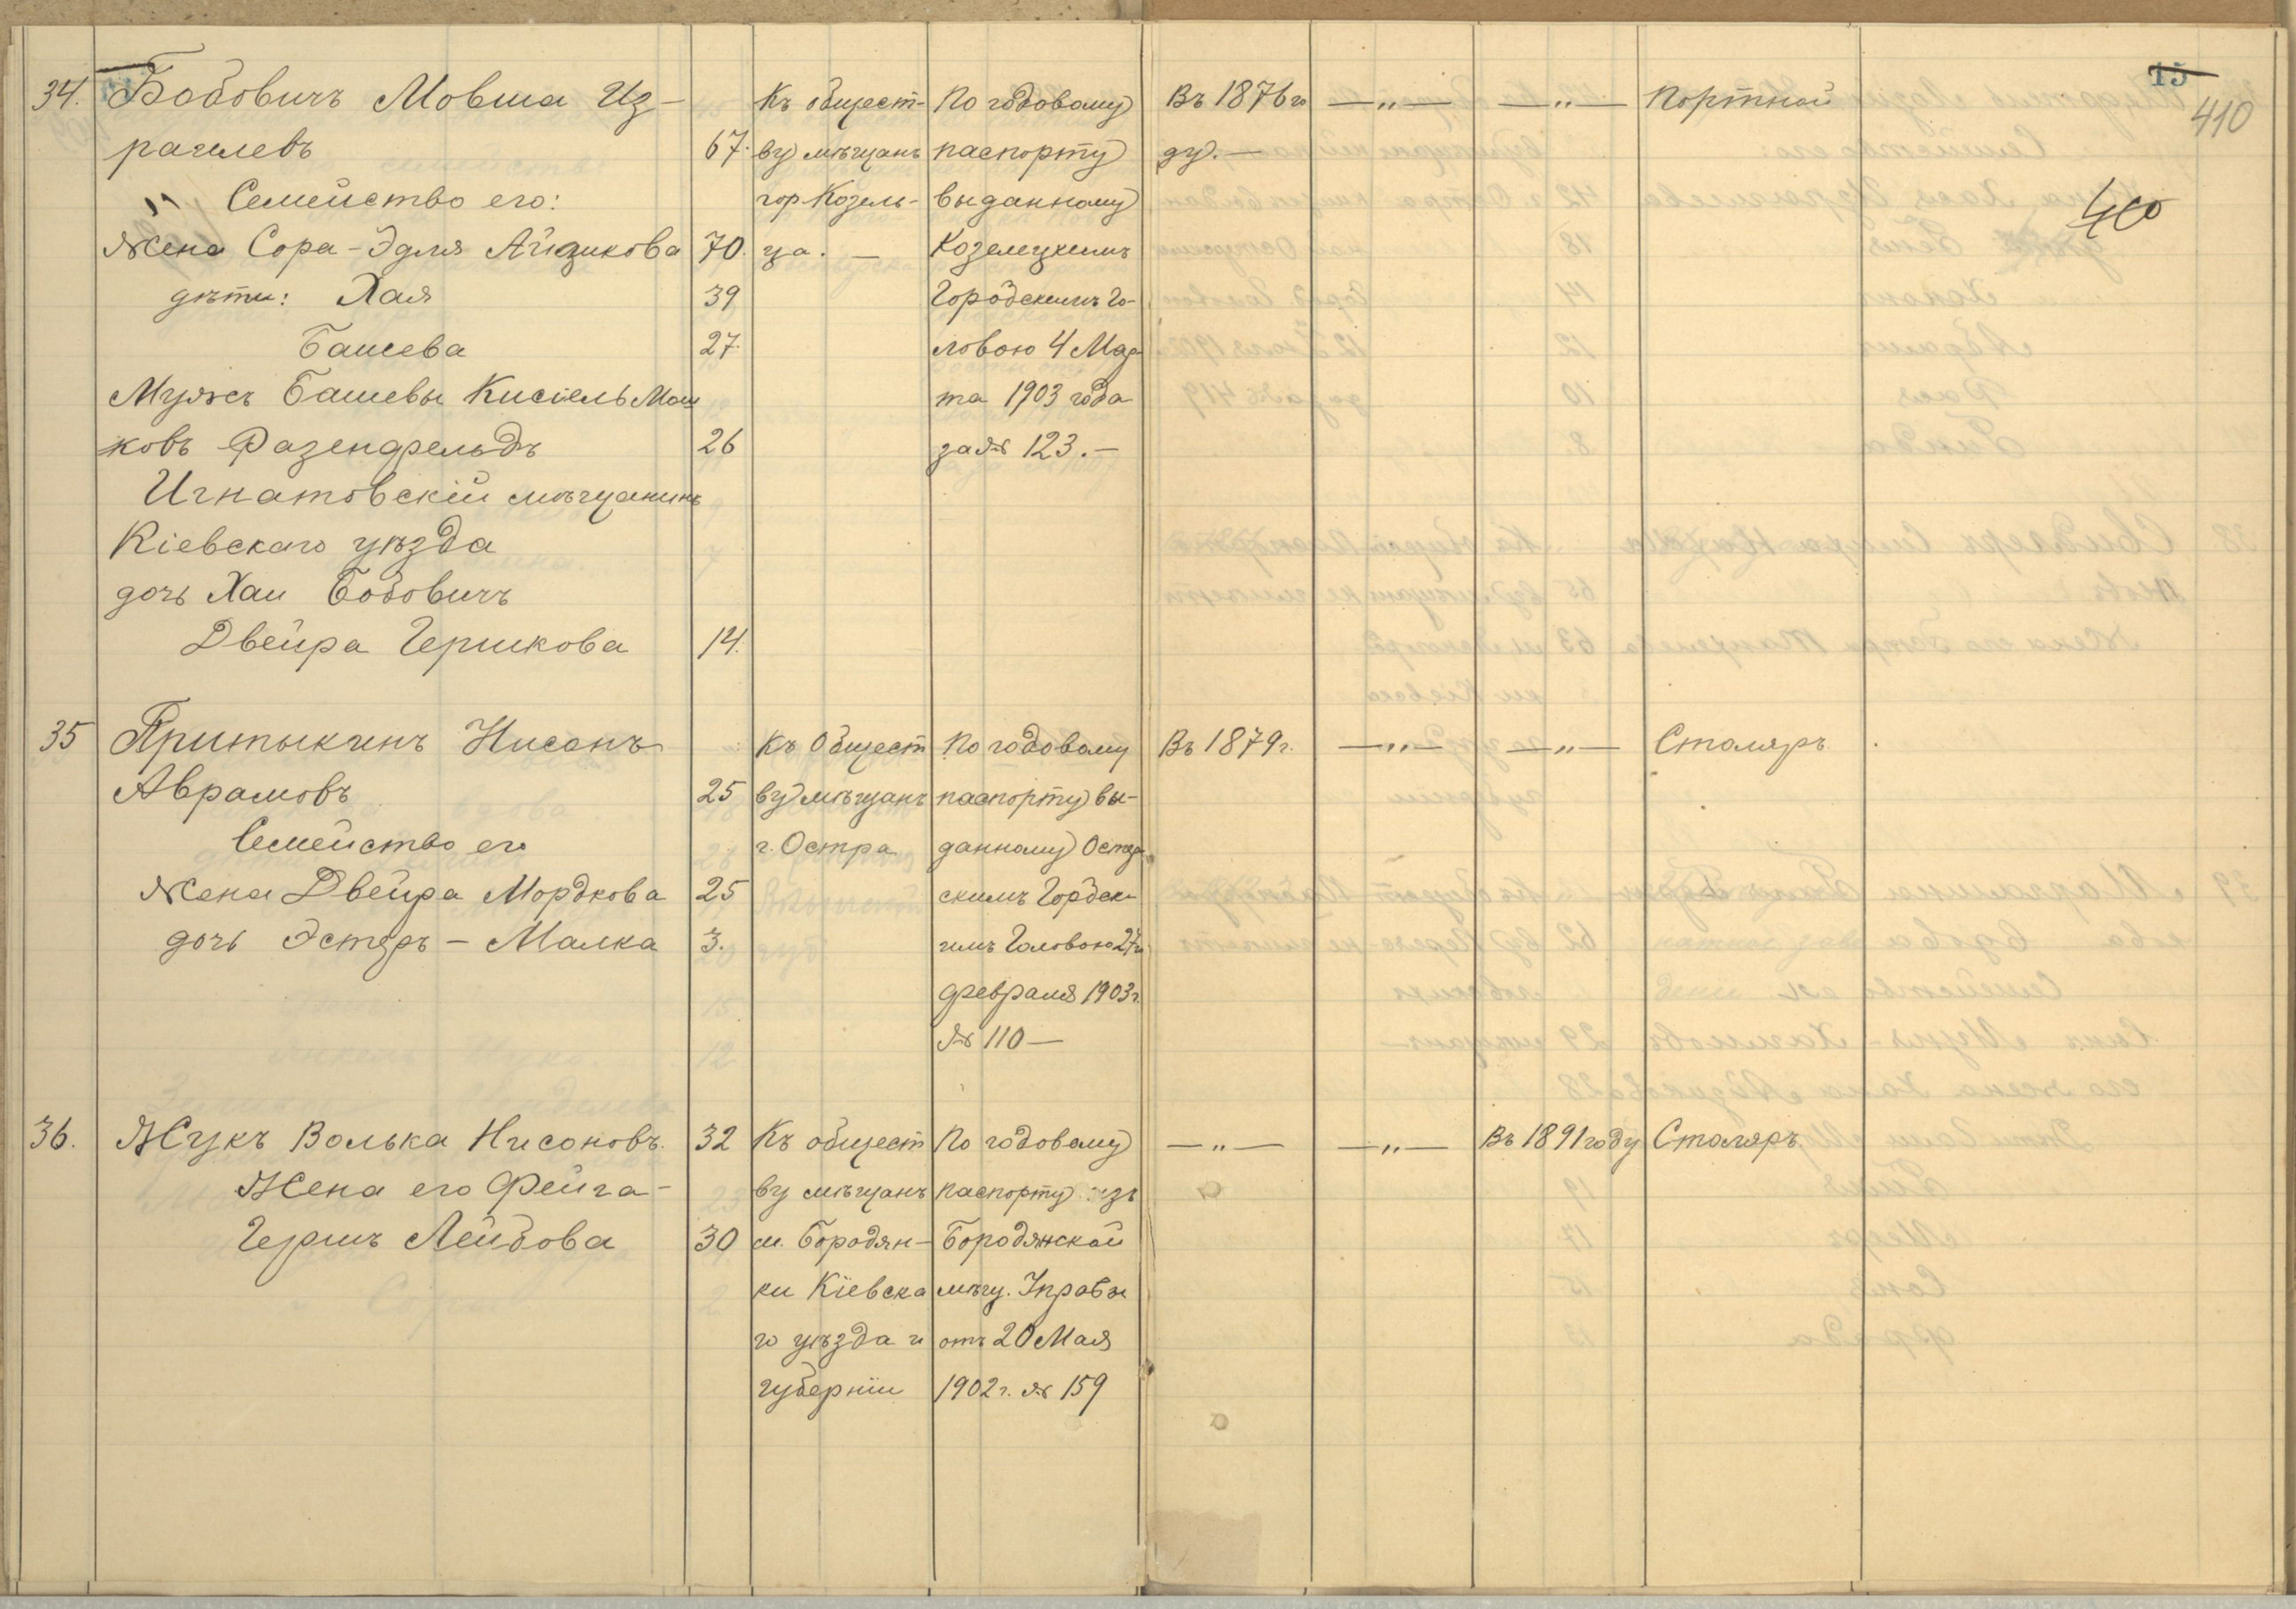 15
410
400
34. Бобовичъ Мовша Из-
раилевъ 67.
Семейство его:
Жена Сора-Эдля Айзикова 70.
дѣти: Хая 39
Башева 27.
Мужъ Башевы Кисіель Мош
ковъ Розенфельдъ 26
Игнатовскій мѣщанинъ
Кіевскаго уѣзда
дочь Хаи Бобовичъ
Двейра Гершкова 14.
Къ общест-
ву мѣщанъ
гор. Козель-
ца. —
По годовому
паспорту
выданному
Козелецкимъ
Городскимъ Го-
ловою 4 Мар-
та 1903 года
за № 123. —
Въ 1876 го
ду. —
— „ —
— „ —
Портной
35 Притыкинъ Нисонъ
Аврамовъ 25
Семейство его
жена Двейра Мордкова 25
дочь Эстеръ - Малка 3.
Къ Общест
ву мѣщанъ
г. Остра
По годовому
паспорту вы-
данному Остер
скимъ Городск
имъ Головою 27го
февраля 1903г.
№ 110 —
Въ 1879г.
— „ —
— „ —
Столяръ
36. Жукъ Волька Нисоновъ. 32
Жена его Фейга-
Гершъ Лейбова 30
Къ общест
ву мѣщанъ
м. Бородян-
ки Кіевска
го уѣзда и
губерніи
По годовому
паспорту изъ
Бородянской
мѣщ. Управы
отъ 20 Мая
1902г. № 159
— „ —
— „ —
Въ 1891 году
Столяръ